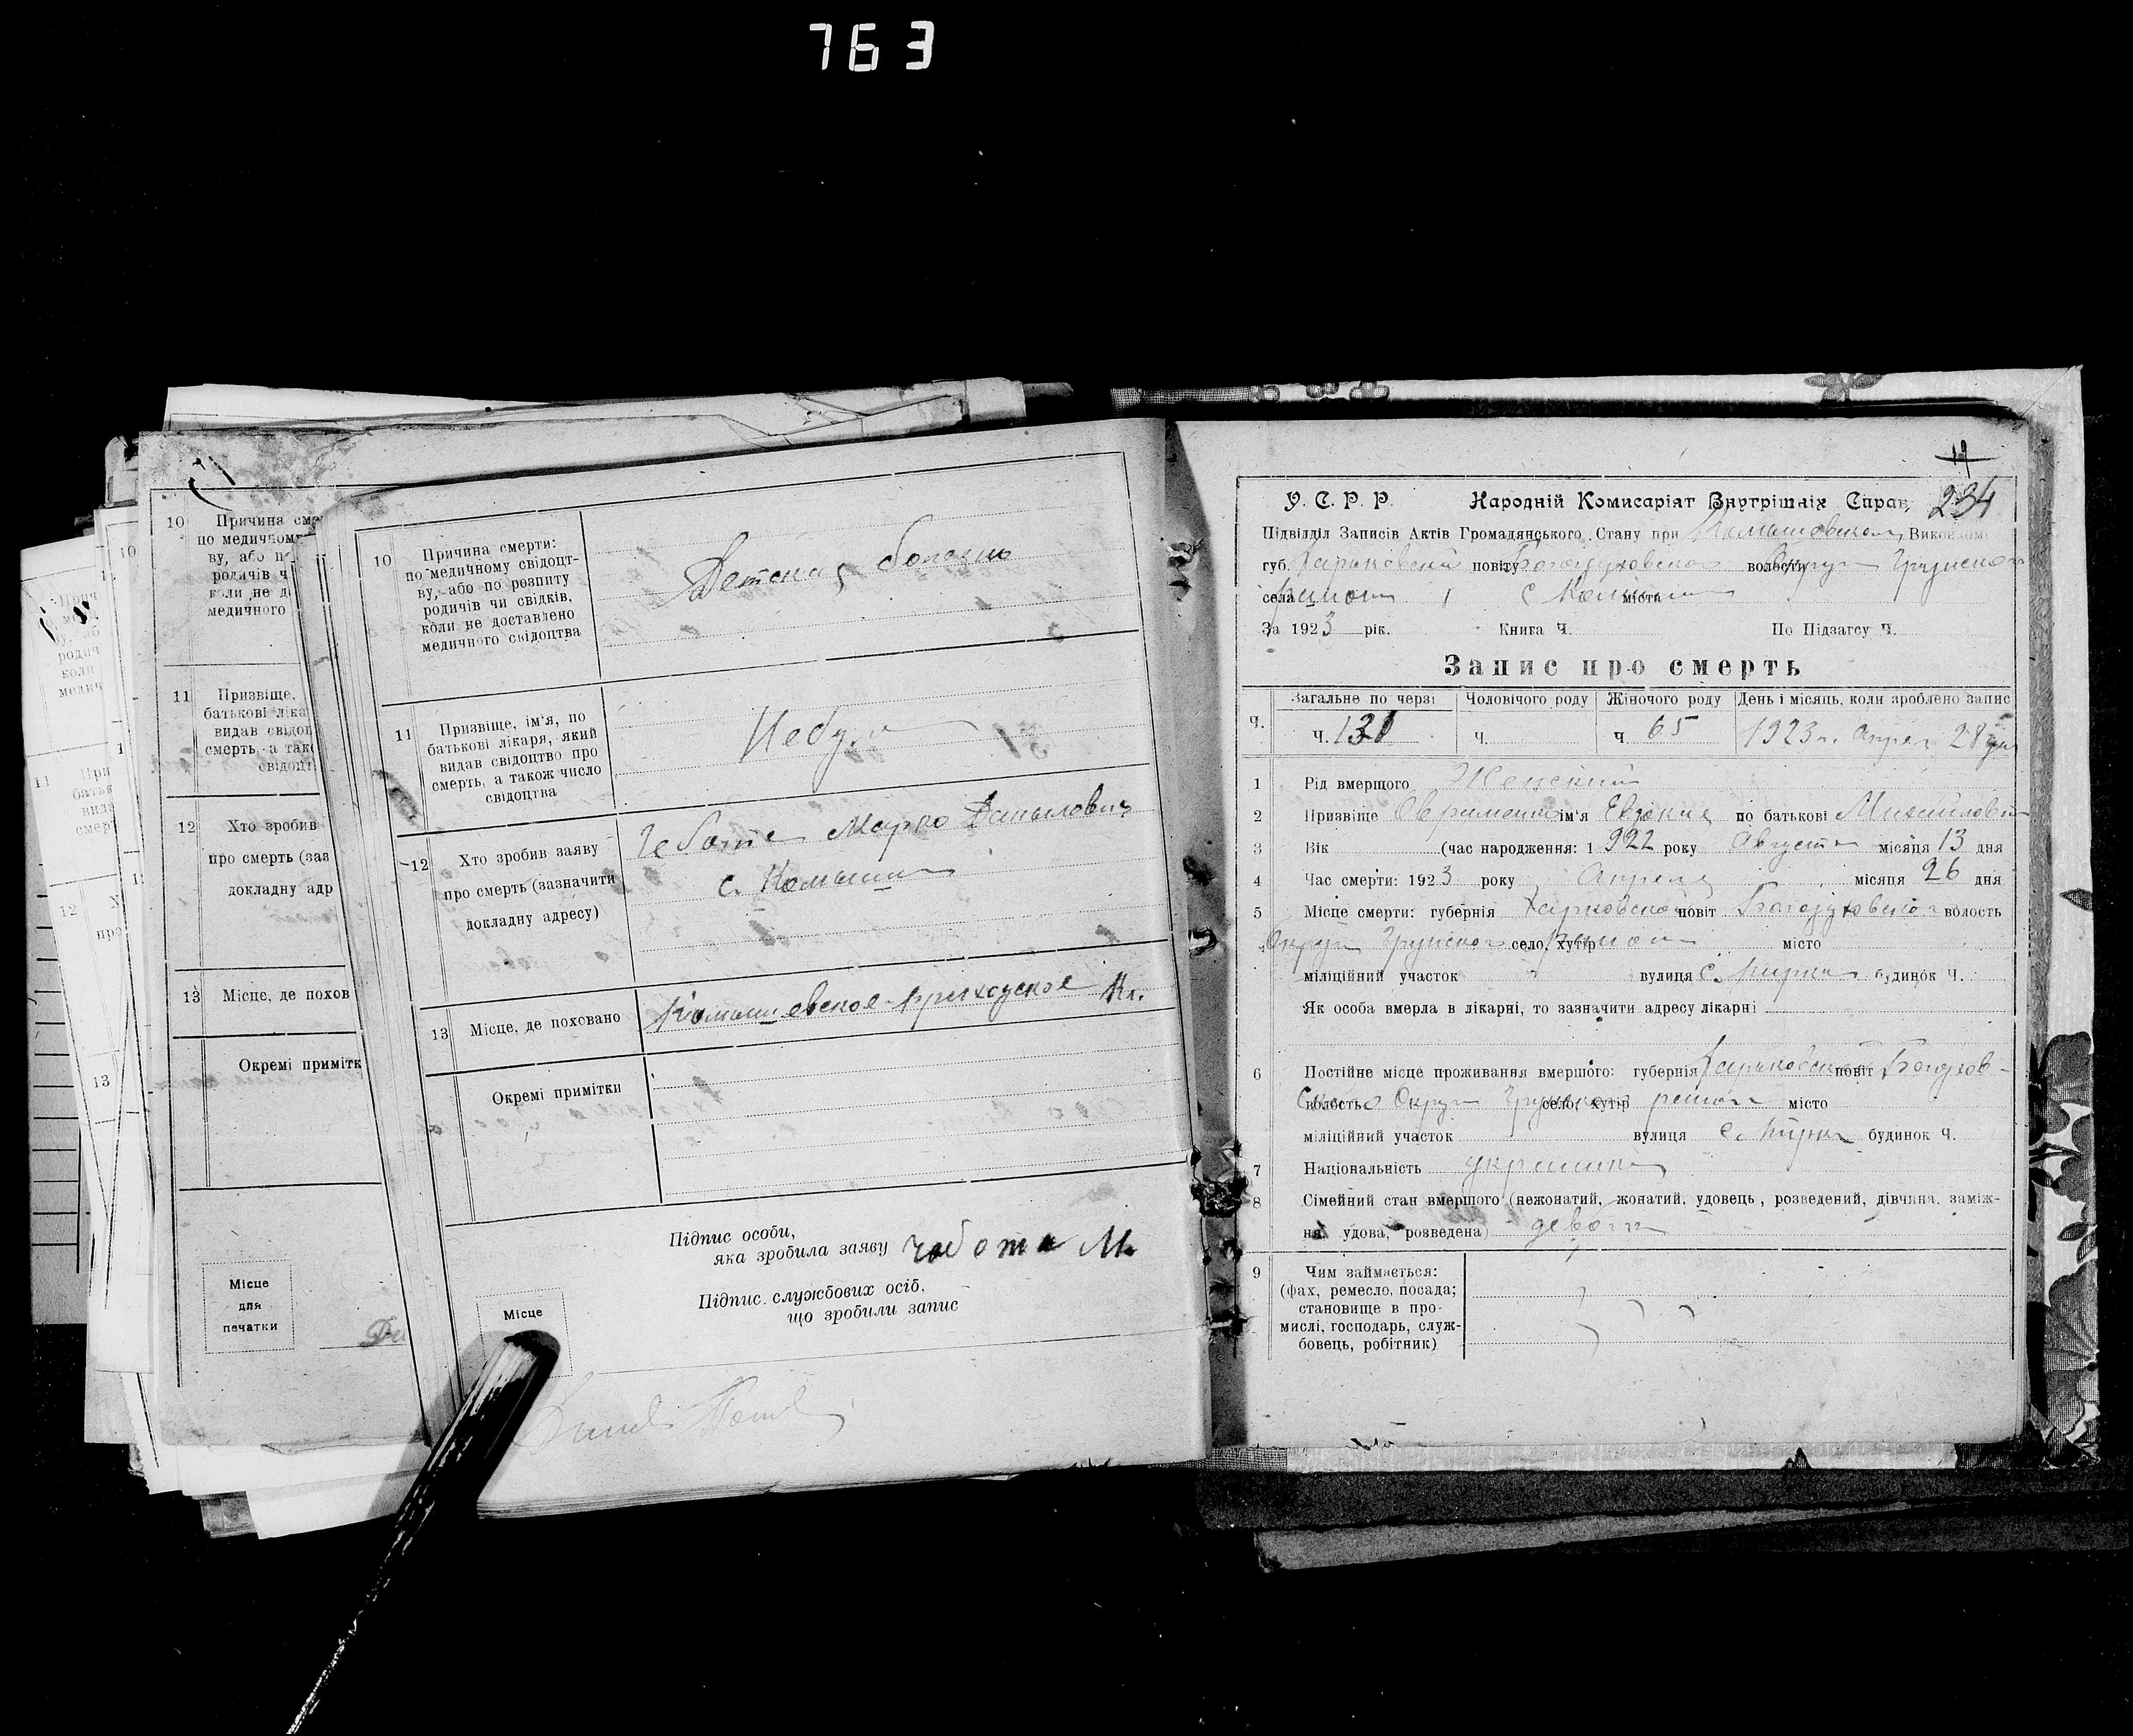 763
10
Причина сме
по медичному
ву, або п
родичів ч
коли не д
медичного
11
Призвіще,
батькові ліка
видав свідоц
смерть, а так
свідоцт
12
Хто зробив
про смерть (заз
докладну адр
13 Місце, де похов
Окремі примітк
Місце
для
печатки
10
Причина смерти:
по медичному свідоцт-
ву, або по розпиту
родичів чи свідків,
коли не доставлено
медичного свідоцтва
Детская болезнь
11
Призвіще, ім'я, по
батькові лікаря, який
видав свідоцтво про
смерть, а також число
свідоцтва
Небуло
12
Хто зробив заяву
про смерть (зазначити
докладну адресу)
Чебота Марко Данилович
с. Комыши
13 Місце, де поховано Комышевское приходское Кл.
Окремі примітки
Підпис особи,
яка зробила заяву Чобота М
Підпис службових осіб,
що зробили запис
Місце
19
234
У. С. Р. Р. Народній Комисаріят Внутрішніх Справ,
Підвідділ Записів Актів Громадянського Стану при Виконкомі
губ. Харьковской повіту Богодуховского волости Округа Грунского
села с Комыши міста
За 1923 рік. Книга Ч. По Підзагсу Ч.
Запис про смерть
Загальне по черзі Чоловічого роду Жіночого роду День і місяць, коли зроблено запис
Ч. ч. 131 ч. ч. 65 1923 г. Апрел 28 дня
1 Рід вмерщого Женский
2 Призвіще Овраменко ім'я Евдокия по батькові Михайловна
3 Вік (час народження: 1922 року Августа місяця 13 дня
4 Час смерти: 1923 року Апреля місяця 26 дня
5 Місце смерти: губернія Харковской повіт Богодуховского волость
Округа Грунского село, хутір района місто
міліційний участок вулиця с. будинок Ч.
Як особа вмерла в лікарні, то зазначити адресу лікарні
6 Постійне місце проживання вмершого: губернія Харьковской повіт Богодухов-
ского волость Округа Грунского село, хутір района місто
міліційний участок вулиця с. будинок Ч.
7 Національність украинка
8 Сімейний стан вмершого (нежонатий, жонатий, удовець, розведений, дівчина, заміж-
ня, удова, розведена)
9
Чим займається:
(фах, ремесло, посада;
становище в про-
мислі, господарь, служ-
бовець, робітник)